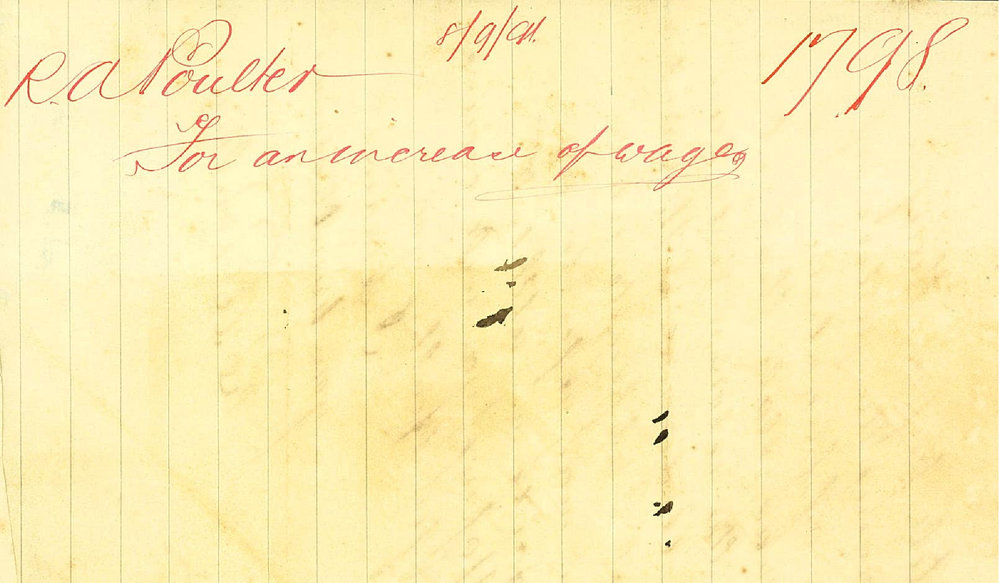 8/9/91.
R. A Poulter 1798.
For an increase of wages